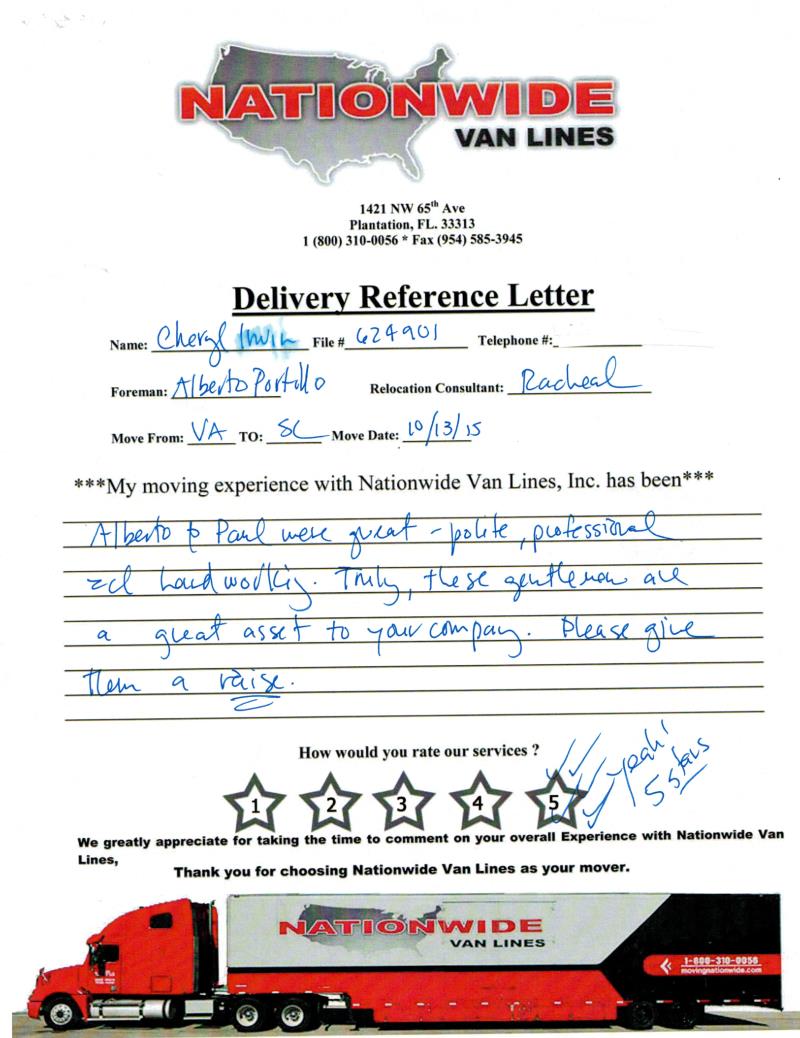 NATIONWIDE
VAN LINES
1421 NW 65th Ave
Plantation, FL. 33313
1 (800) 310-0056 * Fax (954) 585-3945
Delivery Reference Letter
Name: Cheryl Irwin File # 624901 Telephone #:
Foreman: Alberto Portillo Relocation Consultant: Racheal
Move From: VA TO: SC Move Date: 10/13/15
***My moving experience with Nationwide Van Lines, Inc. has been***
Alberto & Paul were great - polite, professional
and hard working. Truly, these gentlemen are
a great asset to your company. Please give
them a raise.
How would you rate our services ?
yeah!
5 stars
1 2 3 4 5
We greatly appreciate for taking the time to comment on your overall Experience with Nationwide Van
Lines,
Thank you for choosing Nationwide Van Lines as your mover.
NATIONWIDE
VAN LINES
1-800-310-0056
movingnationwide.com